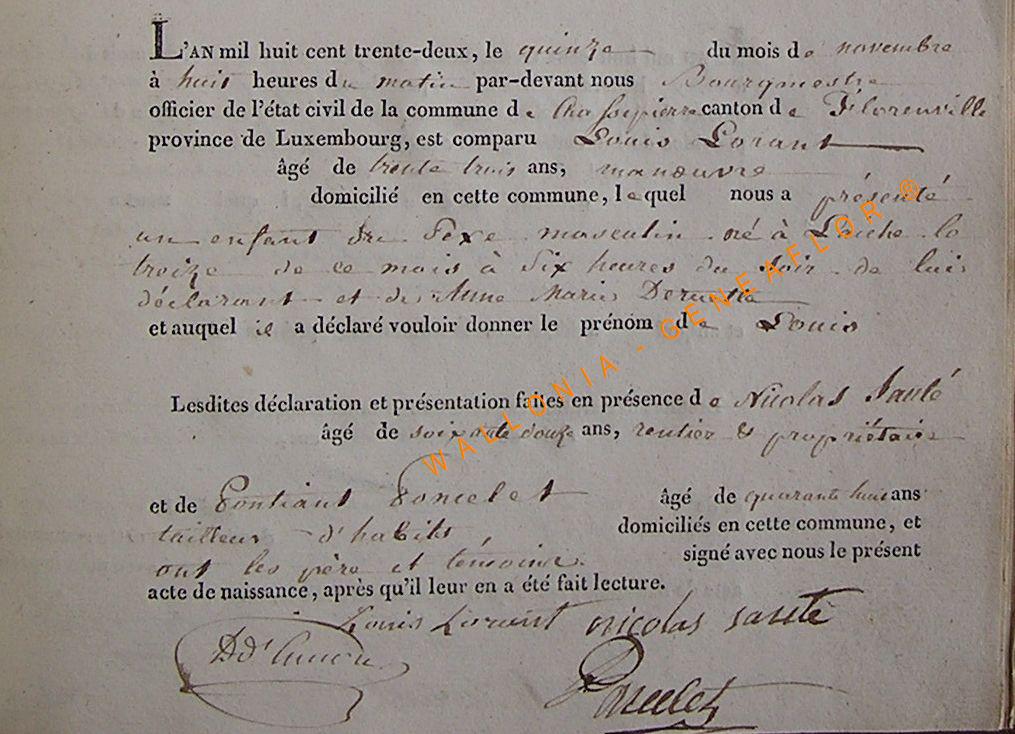 L'AN mil huit cent trente-deux, le quinze du mois de novembre
à huit heures du matin par-devant nous Bourgmestre
officier de l'état civil de la commune de Chassepierre canton de Florenville
province de Luxembourg, est comparu Louis Lorant
âgé de trente trois ans, manœuvre
domicilié en cette commune, lequel nous a présenté
un enfant du Sexe masculin né à Laiche le
treize de ce mois à Six heures du Soir de lui
déclarant et de Anne Marie
et auquel il a déclaré vouloir donner le prénom de Louis
Lesdites déclaration et présentation faites en présence de Nicolas Santé
âgé de soixante douze ans, rentier & propriétaire
et de Pontiant Poncelet âgé de quarante huit ans
tailleur d'habits, domiciliés en cette commune, et
ont les père et témoins signé avec nous le présent
acte de naissance, après qu'il leur en a été fait lecture.
Louis Lorant nicolas santé
Poncelet
WALLONIA - GENEAFLOR ®